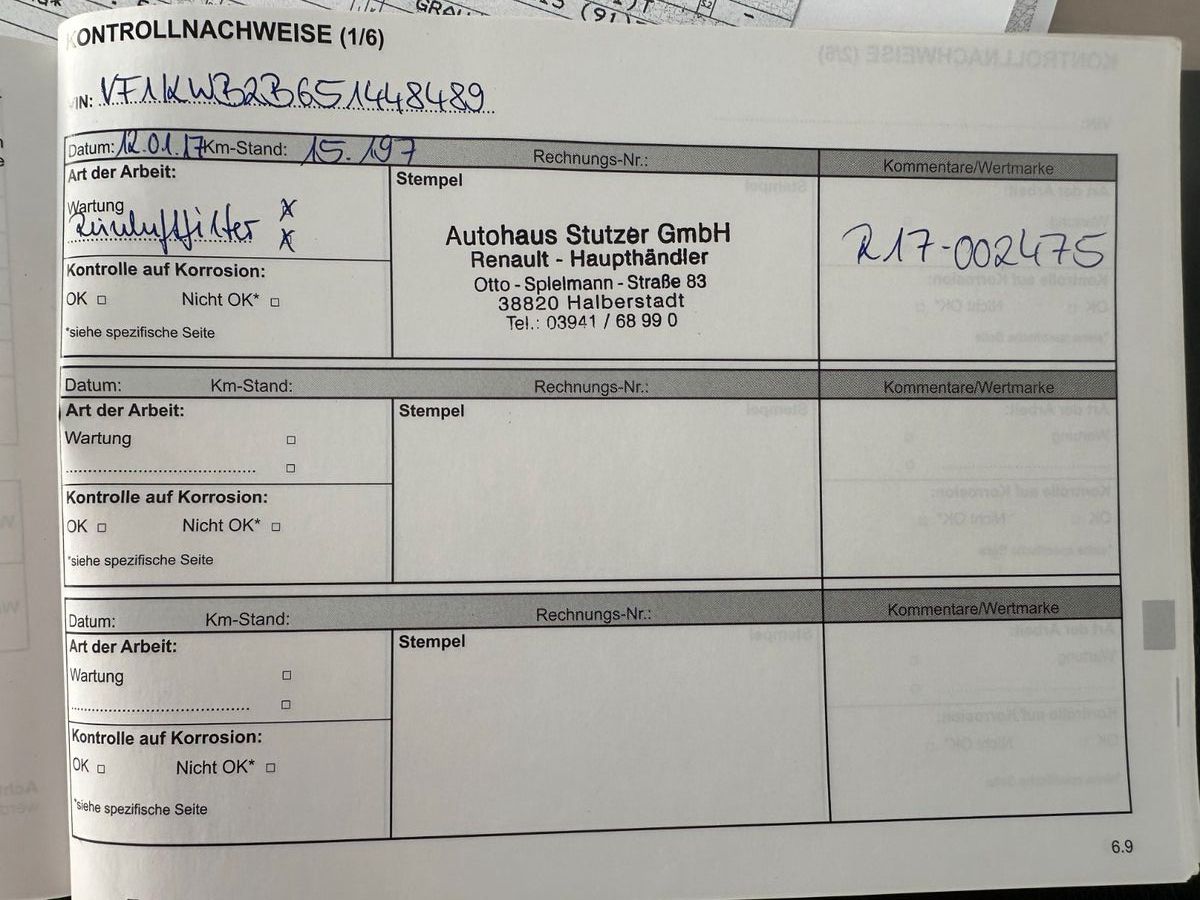 KONTROLLNACHWEISE (1/6)
VIN: VF1KWB2B651448489
Datum: 12.01.17 Km-Stand: 15.197 Rechnungs-Nr.: Kommentare/Wertmarke
Art der Arbeit:
Wartung x
Reinluftfilter x
Kontrolle auf Korrosion:
OK □ Nicht OK* □
*siehe spezifische Seite
Stempel
Autohaus Stutzer GmbH
Renault - Haupthändler
Otto - Splelmann - Straße 83
38820 Halberstadt
Tel.: 03941 / 68 99 0
R17-002475
Datum: Km-Stand: Rechnungs-Nr.: Kommentare/Wertmarke
Art der Arbeit:
Wartung □
........................................... □
Kontrolle auf Korrosion:
OK □ Nicht OK* □
*siehe spezifische Seite
Stempel
Datum: Km-Stand: Rechnungs-Nr.: Kommentare/Wertmarke
Art der Arbeit:
Wartung □
........................................... □
Kontrolle auf Korrosion:
OK □ Nicht OK* □
*siehe spezifische Seite
Stempel
6.9